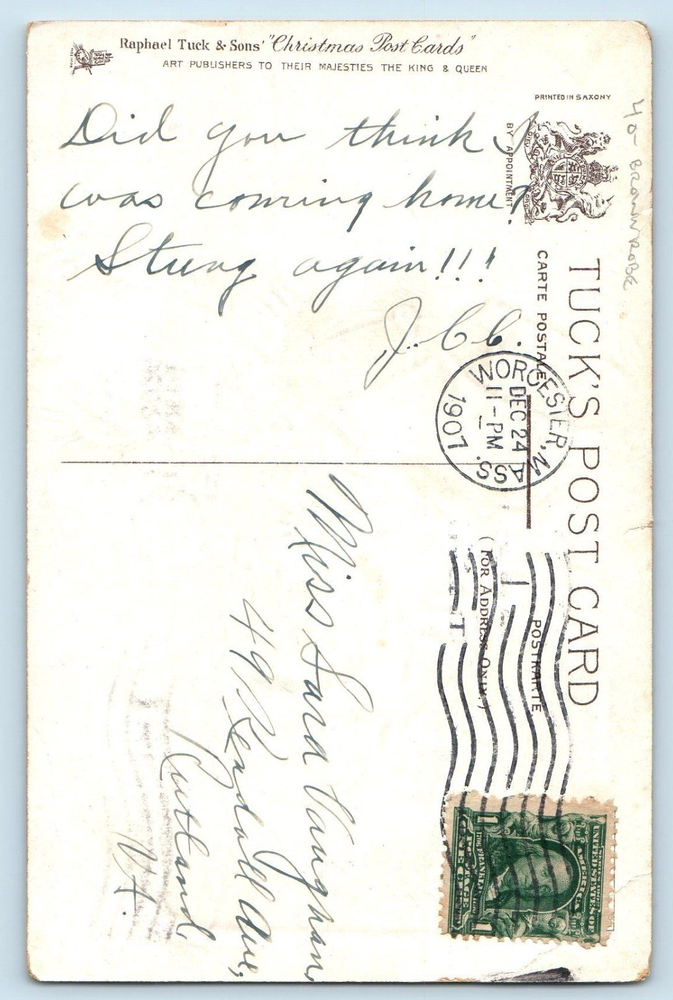 Raphael Tuck & Sons' "Christmas Post Cards"
ART PUBLISHERS TO THEIR MAJESTIES THE KING & QUEEN
PRINTED IN SAXONY
BY APPOINTMENT
Did you think I
was coming home?
Stung again!!!
J.C.C.
TUCK'S POST CARD
CARTE POSTALE
POSTKARTE
(FOR ADDRESS ONLY.)
WORCESTER, MASS.
DEC 24
11-PM
1907
Miss Sara Vaughan,
49 Kendall Ave,
Rutland,
Vt.
40- BROWN ROBE
UNITED STATES OF
AMERICA
FRANKLIN
1 1